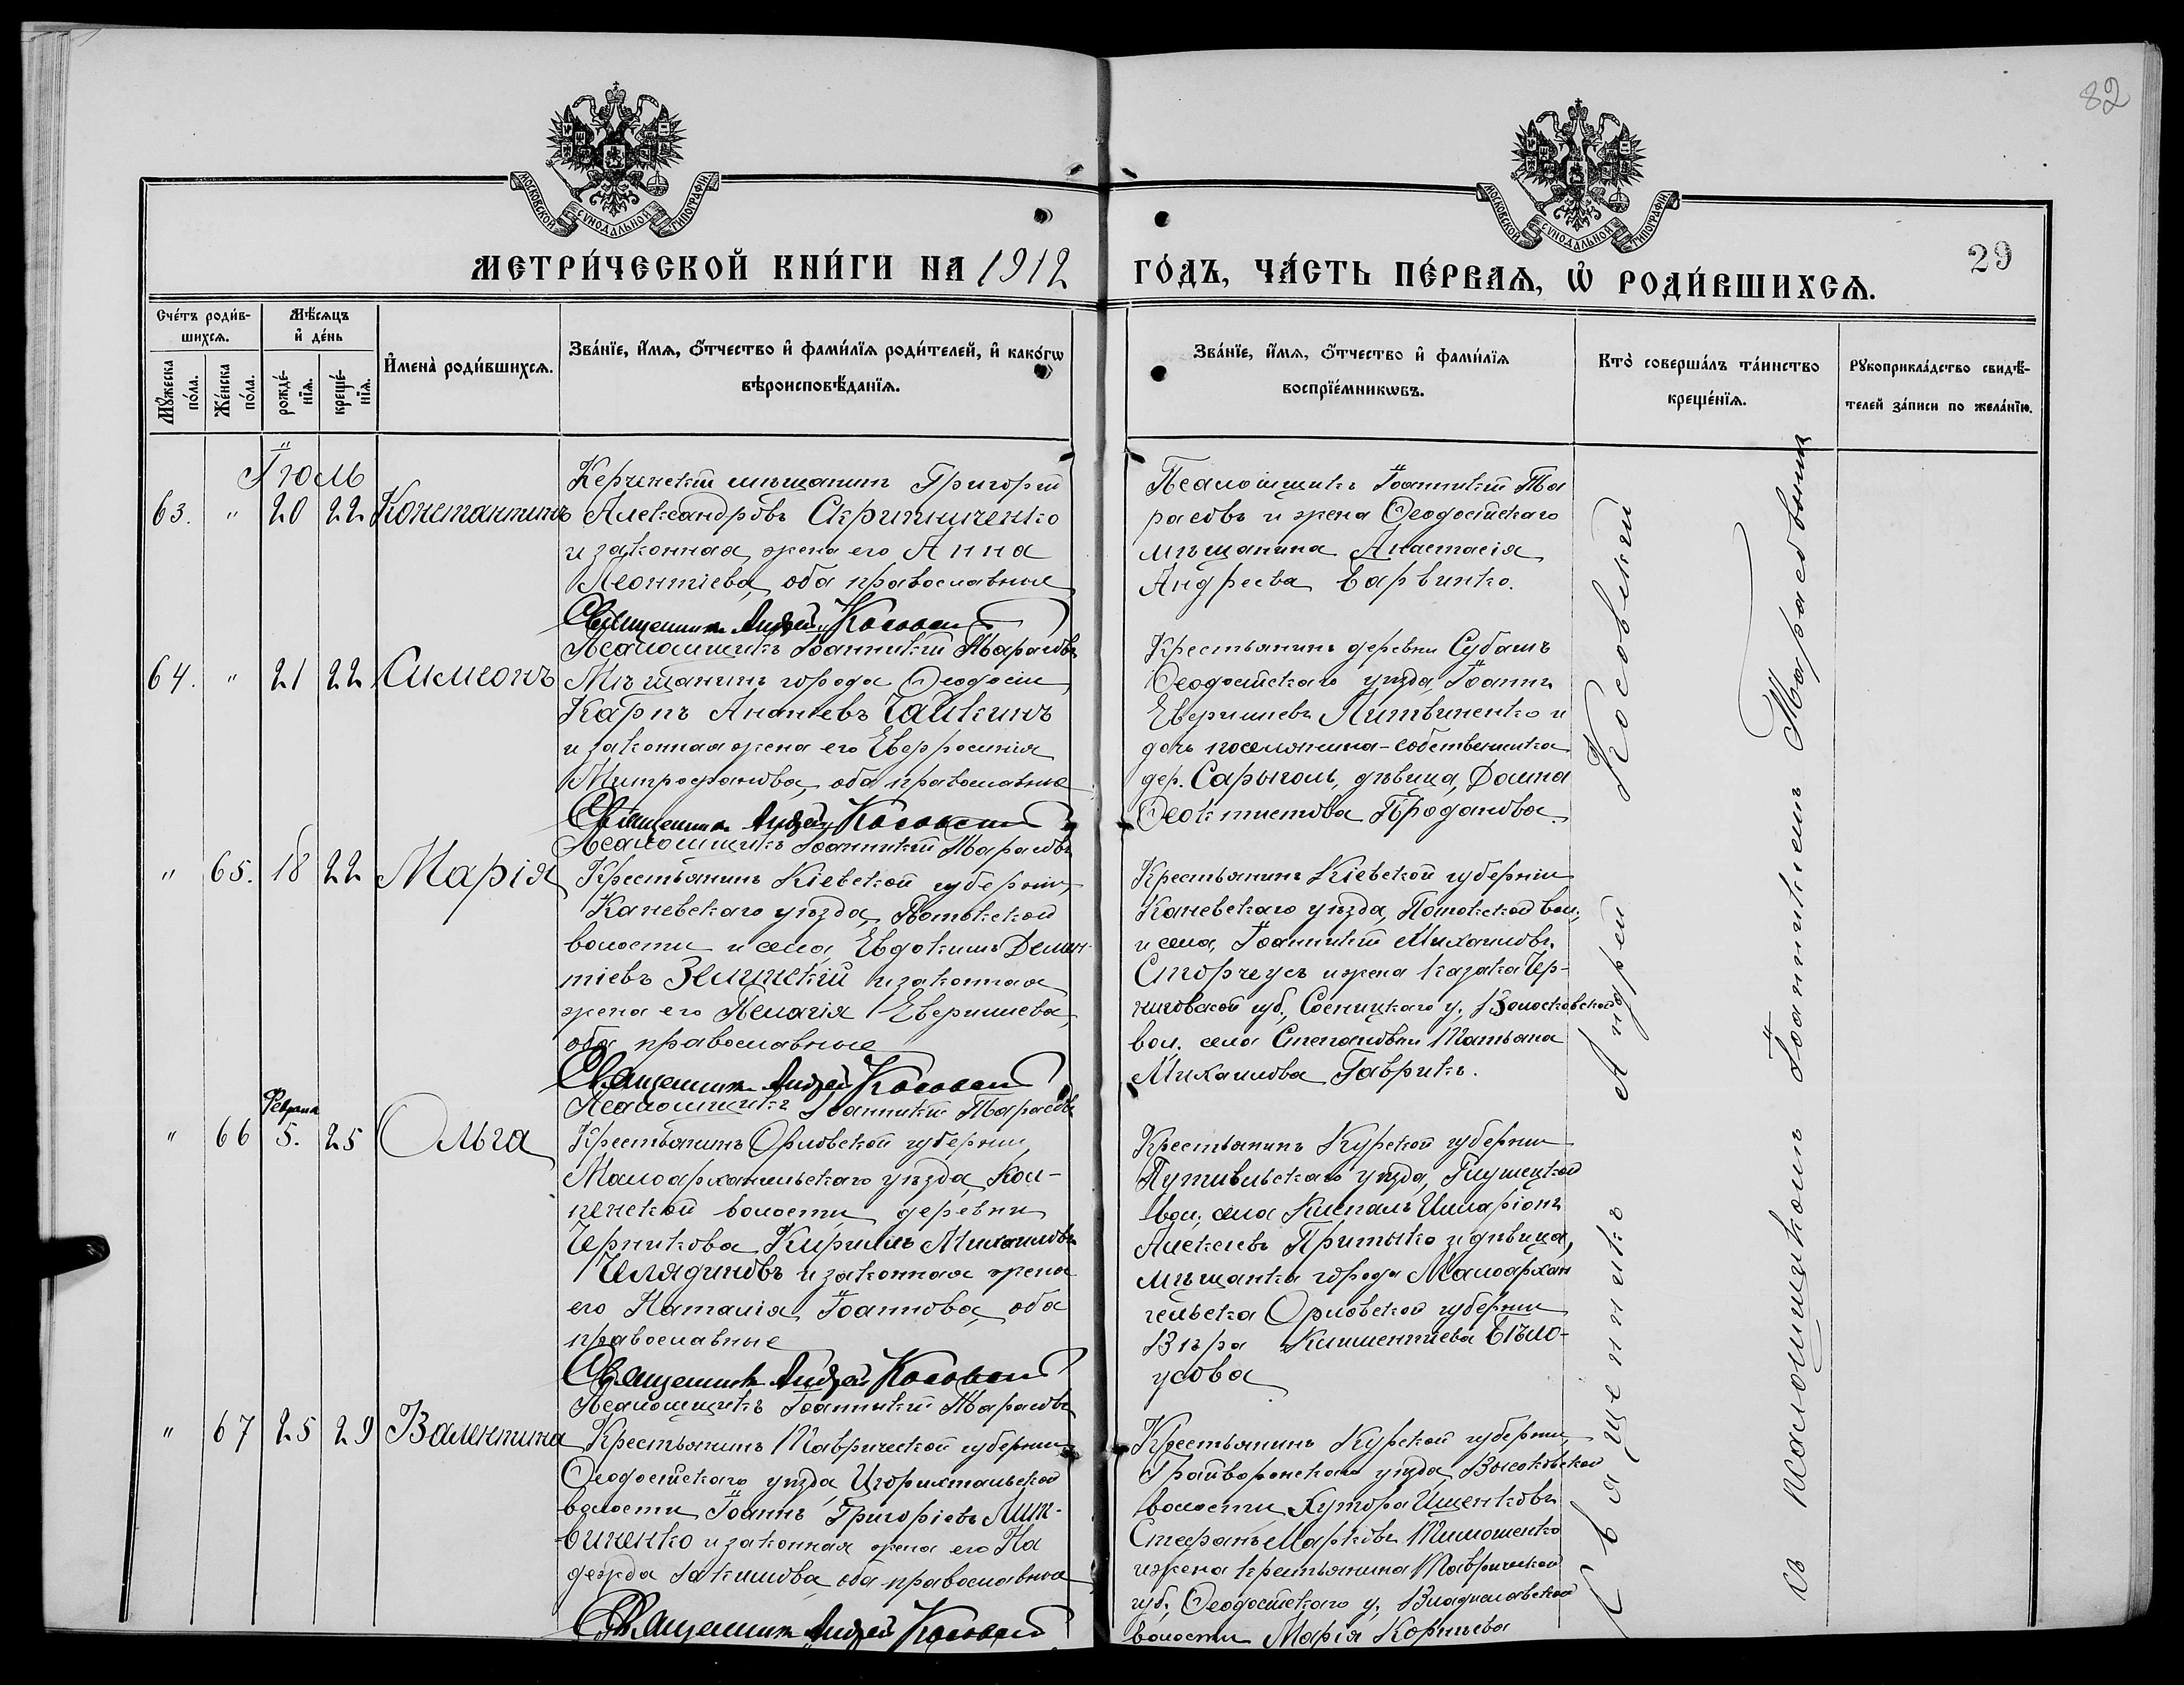 82
МОСКОВСКОЙ СѴНОДАЛЬНОЙ ТИПОГРАФІИ.
МОСКОВСКОЙ СѴНОДАЛЬНОЙ ТИПОГРАФІИ.
29
МЕТРИ́ЧЕСКОЙ КНИ́ГИ НА 1912
ГО́ДЪ, ЧА́СТЬ ПЕ́РВАѦ, Ѡ҆ РОДИ́ВШИХСѦ.
Сче́тъ роди́в-
шихсѧ.
Мꙋ́жеска по́ла.
Же́нска по́ла.
Мѣ́сѧцъ
и҆ де́нь
рожде́-
нїѧ.
креще́-
нїѧ.
И҆мена̀ роди́вшихсѧ.
Зва́нїе, и҆́мѧ, ѻ҆́тчество и҆ фами́лїѧ роди́телей, и҆ како́гѡ
вѣроисповѣ́данїѧ.
Зва́нїе, и҆́мѧ, ѻ҆́тчество и҆ фами́лїѧ
воспрїе́мникѡвъ.
Кто̀ соверша́лъ та́инство
креще́нїѧ.
Рꙋкоприкла́дство свидѣ́-
телей за́писи по жела́нїю.
Іюль
63. " 20 22 Константинъ
Керченскій мѣщанинъ Григорій
Александровъ Скрипниченко
и законная жена его Анна
Леонтіева, оба православные
Священникъ Андрей Косовскій
Псаломщикъ Іоанникій Тарасовъ
Псаломщикъ Іоанникій Та
расовъ и жена Ѳеодосійскаго
мѣщанина Анастасія
Андреева Барвинко.
64. " 21 22 Симеонъ
Мѣщанинъ города Ѳеодосіи,
Карпъ Ананіевъ Чайкинъ
и законная жена его Евфросинія
Митрофанова, оба православные
Священникъ Андрей Косовскій
Псаломщикъ Іоанникій Тарасовъ
Крестьянинъ деревни Субашъ
Ѳеодосійскаго уѣзда, Іоаннъ
Ефимиевъ Литвиненко и
дочь поселянина-собственника
дер. Сарыголь, дѣвица, Домна
Ѳеоктистова Проданова.
" 65. 18 22 Марія
Крестьянинъ Кіевской губерніи,
Каневскаго уѣзда, Потокской
волости и села, Евдокимъ Демен-
тіевъ Зелинскій и законная
жена его Пелагія
оба православные
Священникъ Андрей Косовскій
Псаломщикъ Іоанникій Тарасовъ
Крестьянинъ Кіевской губерніи
Каневскаго уѣзда, Потокской вол.,
и села, Іоанникій Михаиловъ
Сторчеусъ и жена казака Чер-
ниговской губ., Сосницкаго у., Волосковской
вол. села Степановки Татьяна
Михаилова Гаврикъ.
Февраля
" 66 5. 25 Ольга
Крестьянинъ Орловской губерніи,
Малоархангельскаго уѣзда, Кол-
пенской волости, деревни
Черникова Кириллъ Михаиловъ
и законная жена
его Наталія Іоаннова, оба
православные
Священникъ Андрей Косовскій
Псаломщикъ Іоанникій Тарасовъ
Крестьянинъ Курской губерніи
Путивльскаго уѣзда, Глушецкой
вол., села Иларіонъ
Алексіевъ Примыко и дѣвица,
мѣщанка города Малоархан
гельска Орловской губерніи
Вѣра Климентіева Бѣло-
усова
" 67 25 29 Валентина
Крестьянинъ Таврической губерніи
Ѳеодосійскаго уѣзда, Цюрихтальской
волости Іоаннъ Григоріевъ Лит-
виненко и законная жена его На
дежда Іакимова, оба православные
Священникъ Андрей Косовскій
Крестьянинъ Курской губерніи,
Грайворонскаго уѣзда, Высоковской
волости, Хутора Ищенковъ
Стефанъ Марковъ Тимошенко
и жена крестьянина Таврической
губ., Ѳеодосійскаго у., Владиславской
волости Марія Корнѣева
Священникъ Андрей Косовскій
съ псаломщикомъ Іоанникіемъ Тарасовымъ